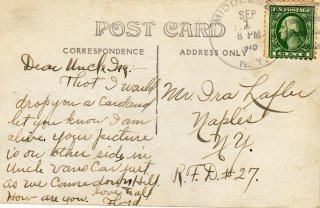 POST CARD
CORRESPONDENCE
ADDRESS ONLY
SEP
8 PM
N.Y.
Dear Uncle Ira.
Thot I would
drop you a Card and
let you know I am
alive. Your picture
is on other side in
Uncle Vans Car just
as we Came down Hill
love to all
How are you.
Mr. Ira Kaflee
Naples
N.Y.
R.F.D. #27.